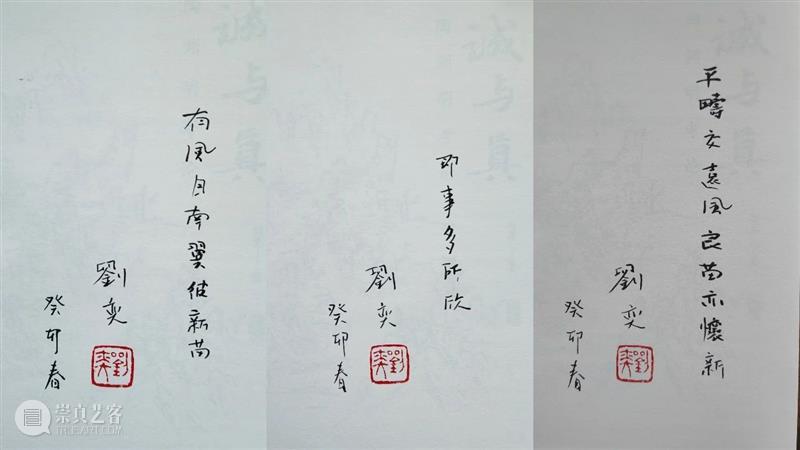 有風自南翼彼新苗
劉奕
癸卯春
劉奕
即事多所欣
劉奕
癸卯春
劉奕
平疇交遠風良苗亦懷新
劉奕
癸卯春
劉奕
崇真艺客